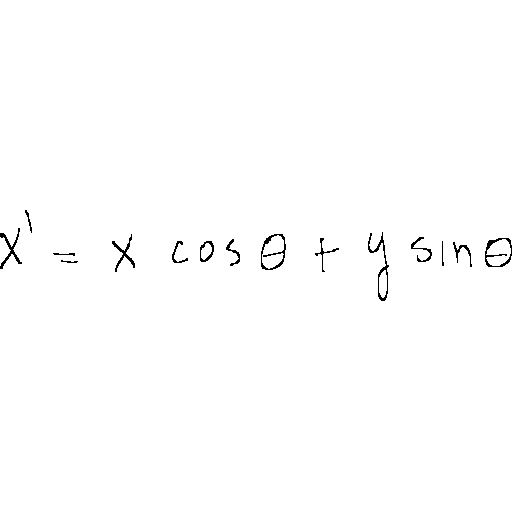 x' = x cos θ + y sin θ